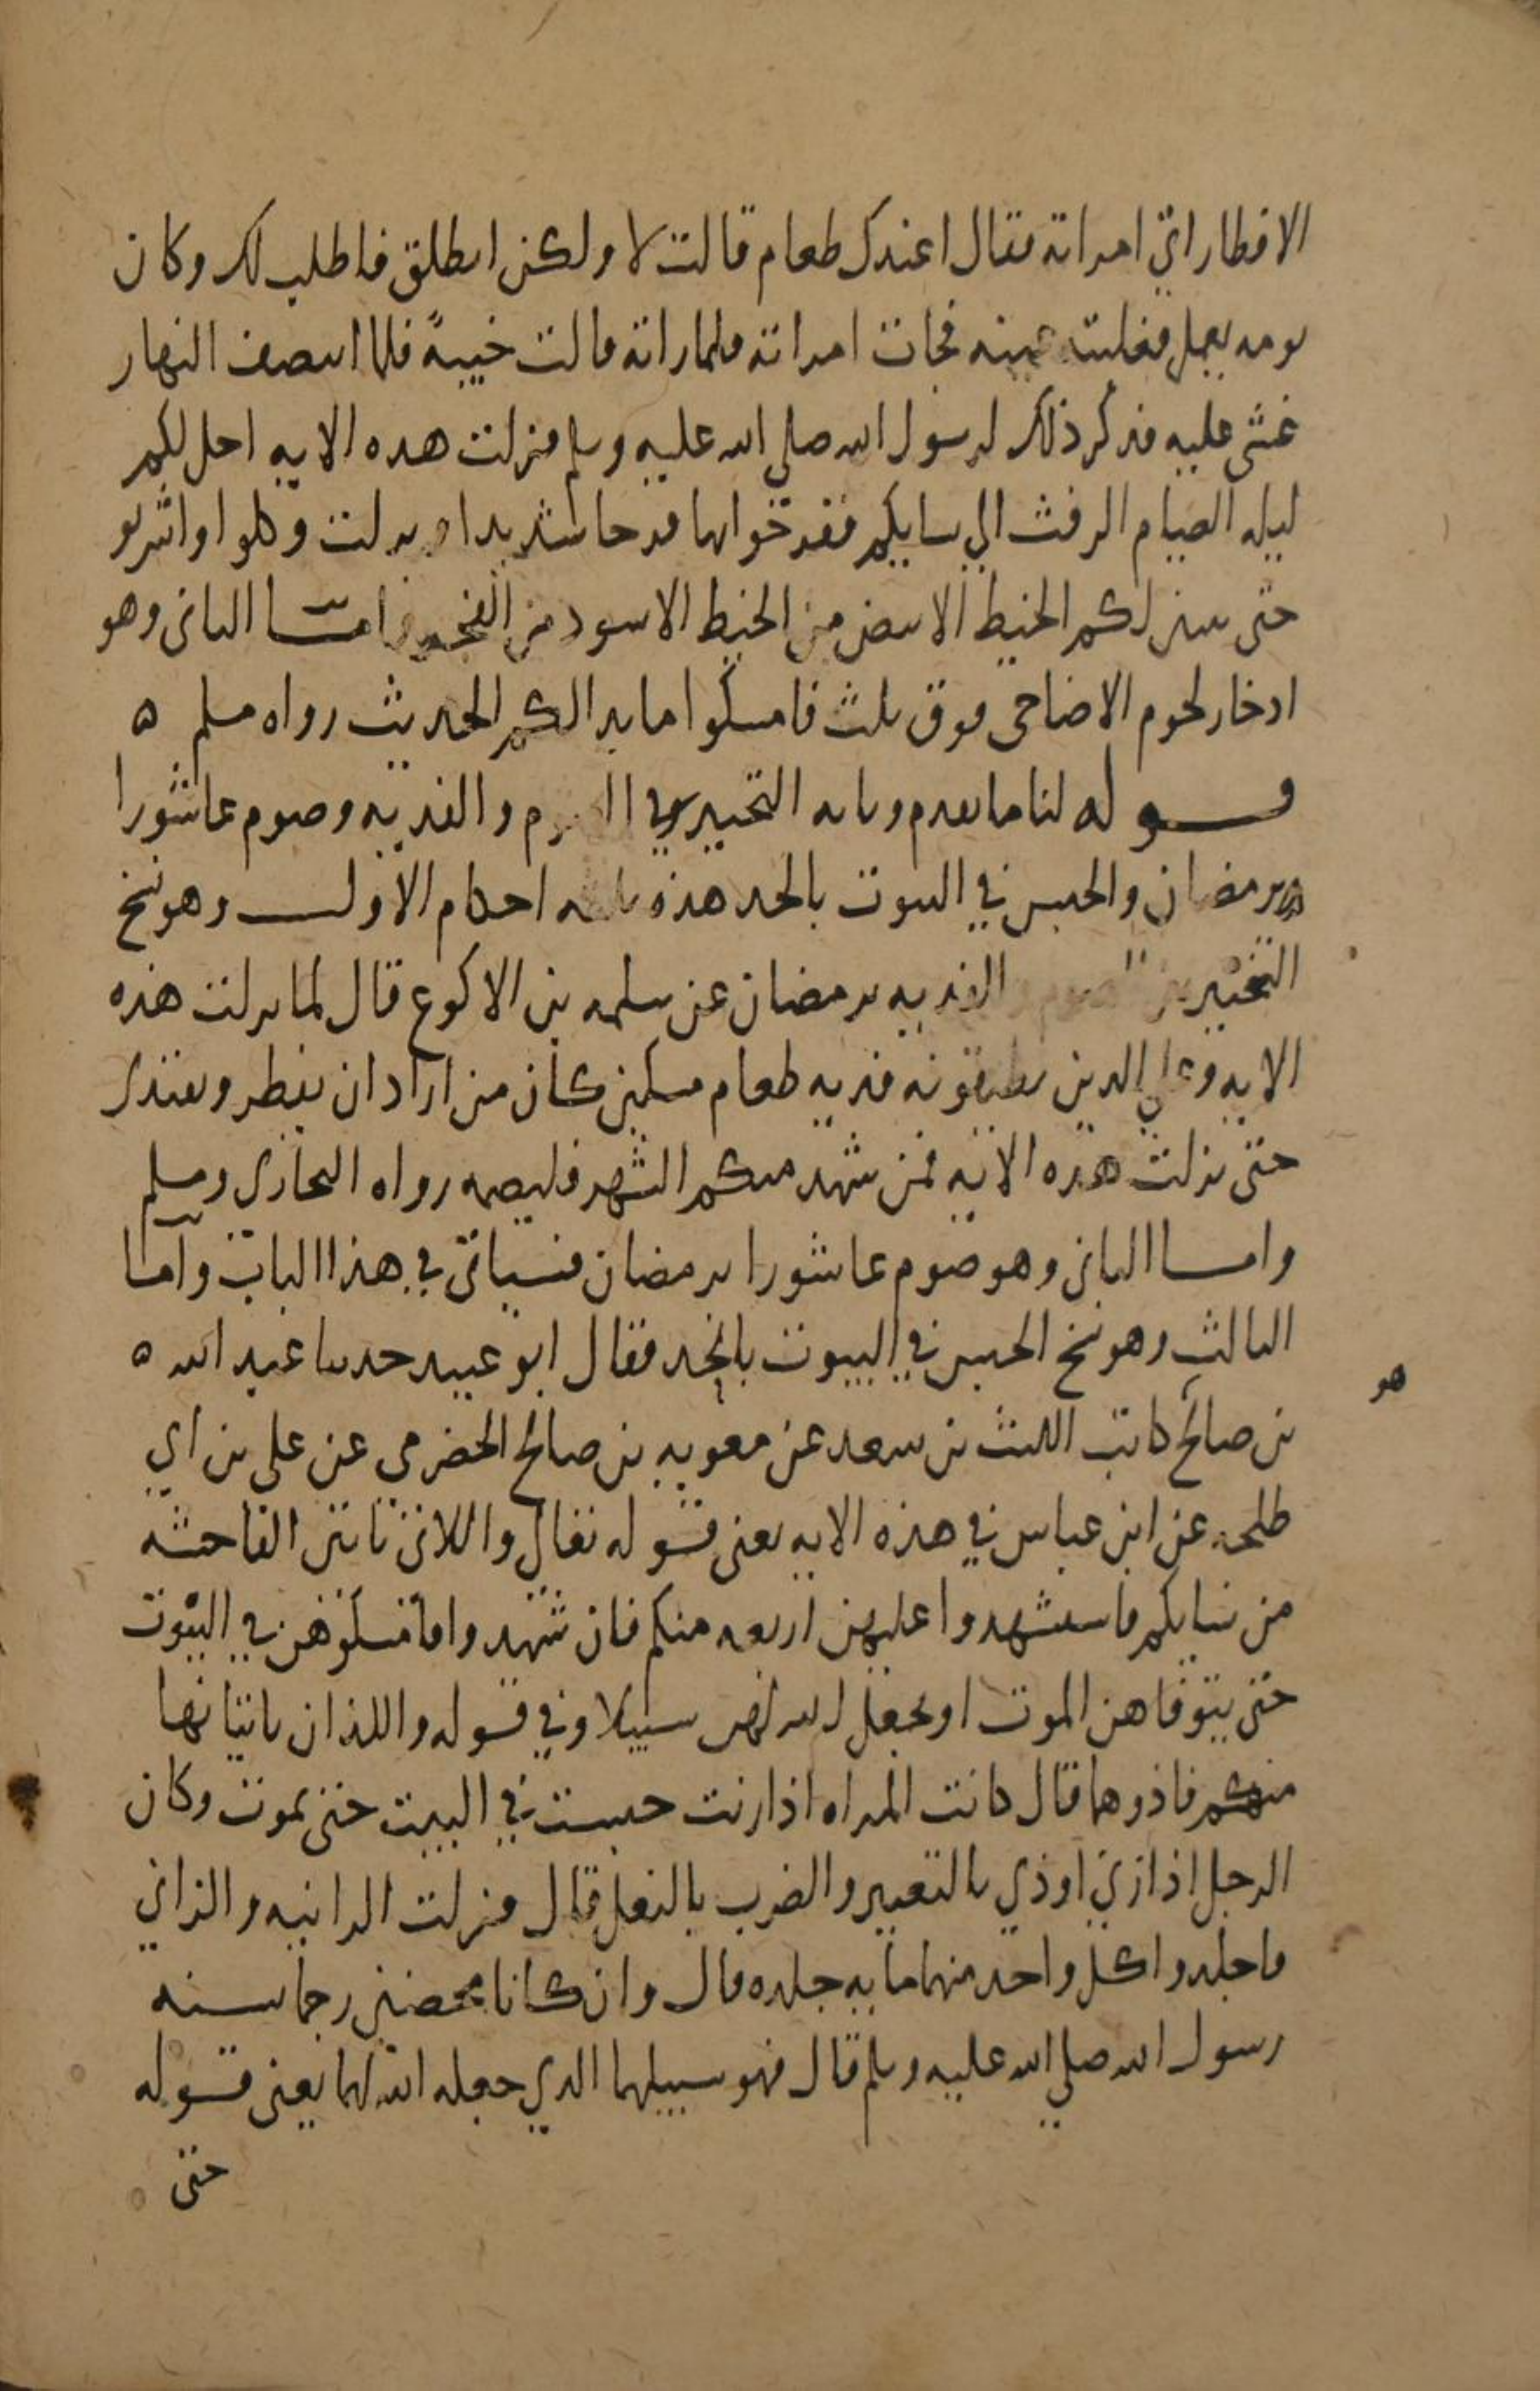 الافطار اتى امراته فقال اعندك طعام قالت لا ولكن انطلق فاطلب لك وكان
يومه يعمل فغلبته عينه فجات امراته فلما راته قالت خيبةً فلما انتصف النهار
غشى عليه فذكر ذلك لرسول الله صلى الله عليه وسلم فنزلت هذه الايه احل لكم
ليله الصيام الرفث الي نسايكم ففرحوا بها فرحا شديدا ونزلت وكلوا واشربو
حتى يتبين لكم الخيط الابيض من الخيط الاسود من الفجر وامــا الثانى وهو
ادخار لحوم الاضاحى فوق ثلث فامسكوا ما بدا لكم الحديث رواه مسلم ه
قــوله لنا ما تقدم وبانه التخيير في الصوم والفديه وصوم عاشورا
برمضان والحبس في البيوت بالحد هذه ثلثه احكام الاول وهو نسخ
التخيير بين الصوم والفديه برمضان عن سلمه بن الاكوع قال لما نزلت هذه
الايه وعلي الدين يطيقونه فديه طعام مسكين كان من اراد ان يفطر ويفتدى
حتى نزلت هذه الايه فمن شهد منكم الشهر فليصمه رواه البخارى ومسلم
وامــا الثانى وهو صوم عاشورا برمضان فسياتى في هذا الباب وامــا
الثالث وهو نسخ الحبس في البيوت بالحد فقال ابو عبيد حدثنا عبد الله ه
بن صالح كاتب الليث بن سعد عن معويه بن صالح الحضرمى عن على بن ابي
طلحه عن ابن عباس في هذه الايه يعنى قوله تعالى واللاتى ياتين الفاحشه
من نسايكم فاستشهدوا عليهن اربعه منكم فان شهدوا فامسكوهن في البيوت
حتى يتوفاهن الموت او يجعل الله لهن سبيلا وفي قوله واللذان ياتيانها
منكم فاذوهما قال كانت المراه اذا زنت حبست في البيت حتى تموت وكان
الرجل اذا زني اوذي بالتعيير والضرب بالنعل قال فنزلت الزانيه والزاني
فاجلدوا كل واحد منهما مايه جلده قال وان كانا محصنين رجما بسنه
رسول الله صلي الله عليه وسلم قال فهو سبيلهما الدي جعله الله لهما يعنى قوله
حتى
هو